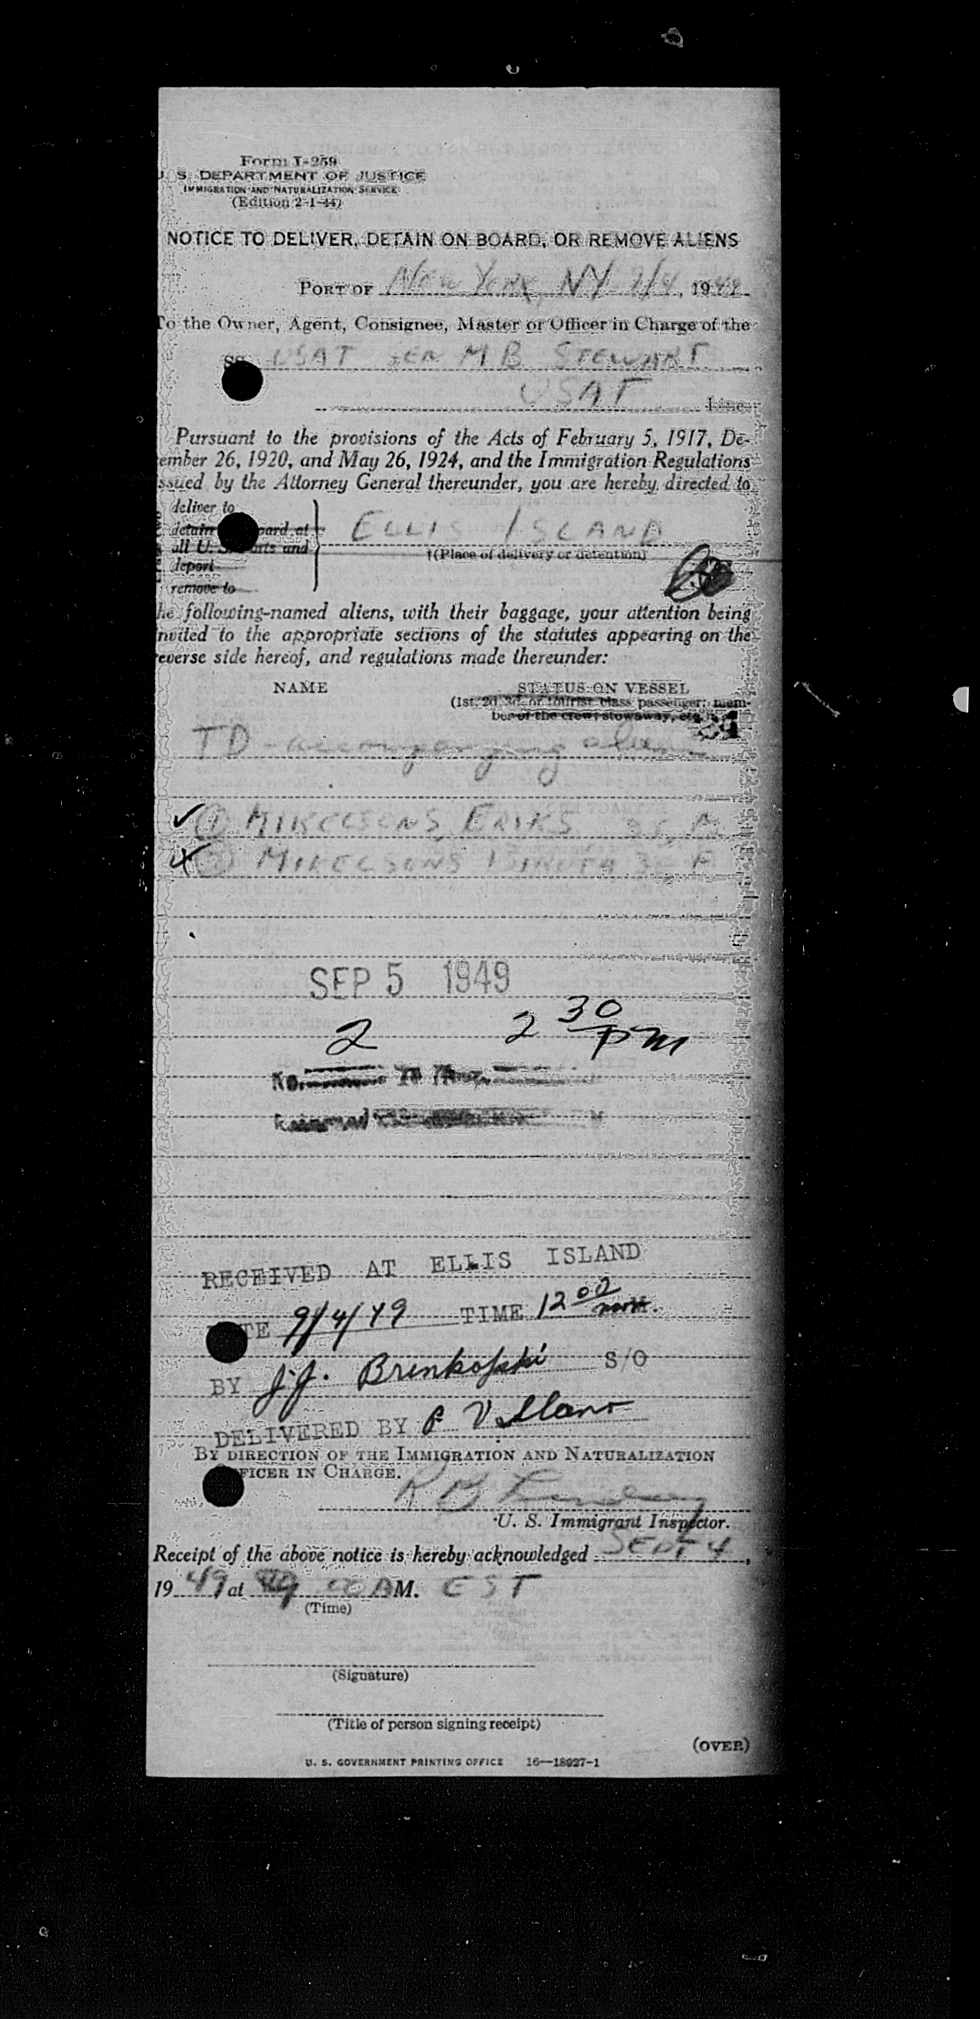 Form I-259
U. S. DEPARTMENT OF JUSTICE
IMMIGRATION AND NATURALIZATION SERVICE
(Edition 2-1-44)
NOTICE TO DELIVER, DETAIN ON BOARD, OR REMOVE ALIENS
PORT OF New York, NY 9/4, 1949
To the Owner, Agent, Consignee, Master or Officer in Charge of the
SS USAT GEN M B STEWART
USAT Line
Pursuant to the provisions of the Acts of February 5, 1917, De-
ember 26, 1920, and May 26, 1924, and the Immigration Regulations
ssued by the Attorney General thereunder, you are hereby directed to
deliver to
detain oard at
all U. S. orts and
deport
remove to
ELLIS ISLAND
†(Place of delivery or detention)
he following-named aliens, with their baggage, your attention being
nvited to the appropriate sections of the statutes appearing on the
everse side hereof, and regulations made thereunder:
NAME STATUS ON VESSEL
(1st, 2d, 3d, or tourist class passenger; mem-
ber of the crew; stowaway, etc.)
TD - accompanying alien
✓ (1) MIKELSONS, ERIKS 35 M
(2) MIKELSONS F
SEP 5 1949
2 2 30 PM
RECEIVED AT ELLIS ISLAND
TE 9/4/49 TIME 12 00
BY J.J. Brenkofski S/O
DELIVERED BY P.
BY DIRECTION OF THE IMMIGRATION AND NATURALIZATION
FFICER IN CHARGE.
U. S. Immigrant Inspector.
Receipt of the above notice is hereby acknowledged SEPT 4,
19 49 at M. EST
(Time)
(Signature)
(Title of person signing receipt)
(OVER)
U. S. GOVERNMENT PRINTING OFFICE 16—18927-1